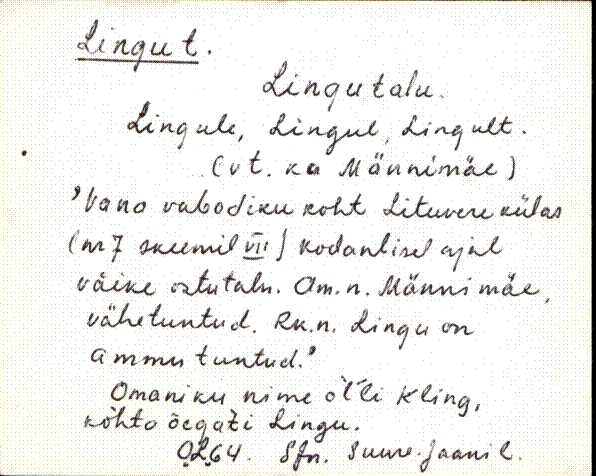 Lingut.
Lingutalu.
Lingule, Lingul, Lingult.
(vt. ka Männimäe)
'Vana vabadiku koht Lituvere külas
(nr 7 skeemil VII) kodanlisel ajal
väike ostutalu. Am. n. Männimäe,
vähetuntud. Rk. n. Lingu on
ammu tuntud.'
Omaniku nime õl'li Kling,
kõhta õegati Lingu.
Sfn. Suure-Jaani l.